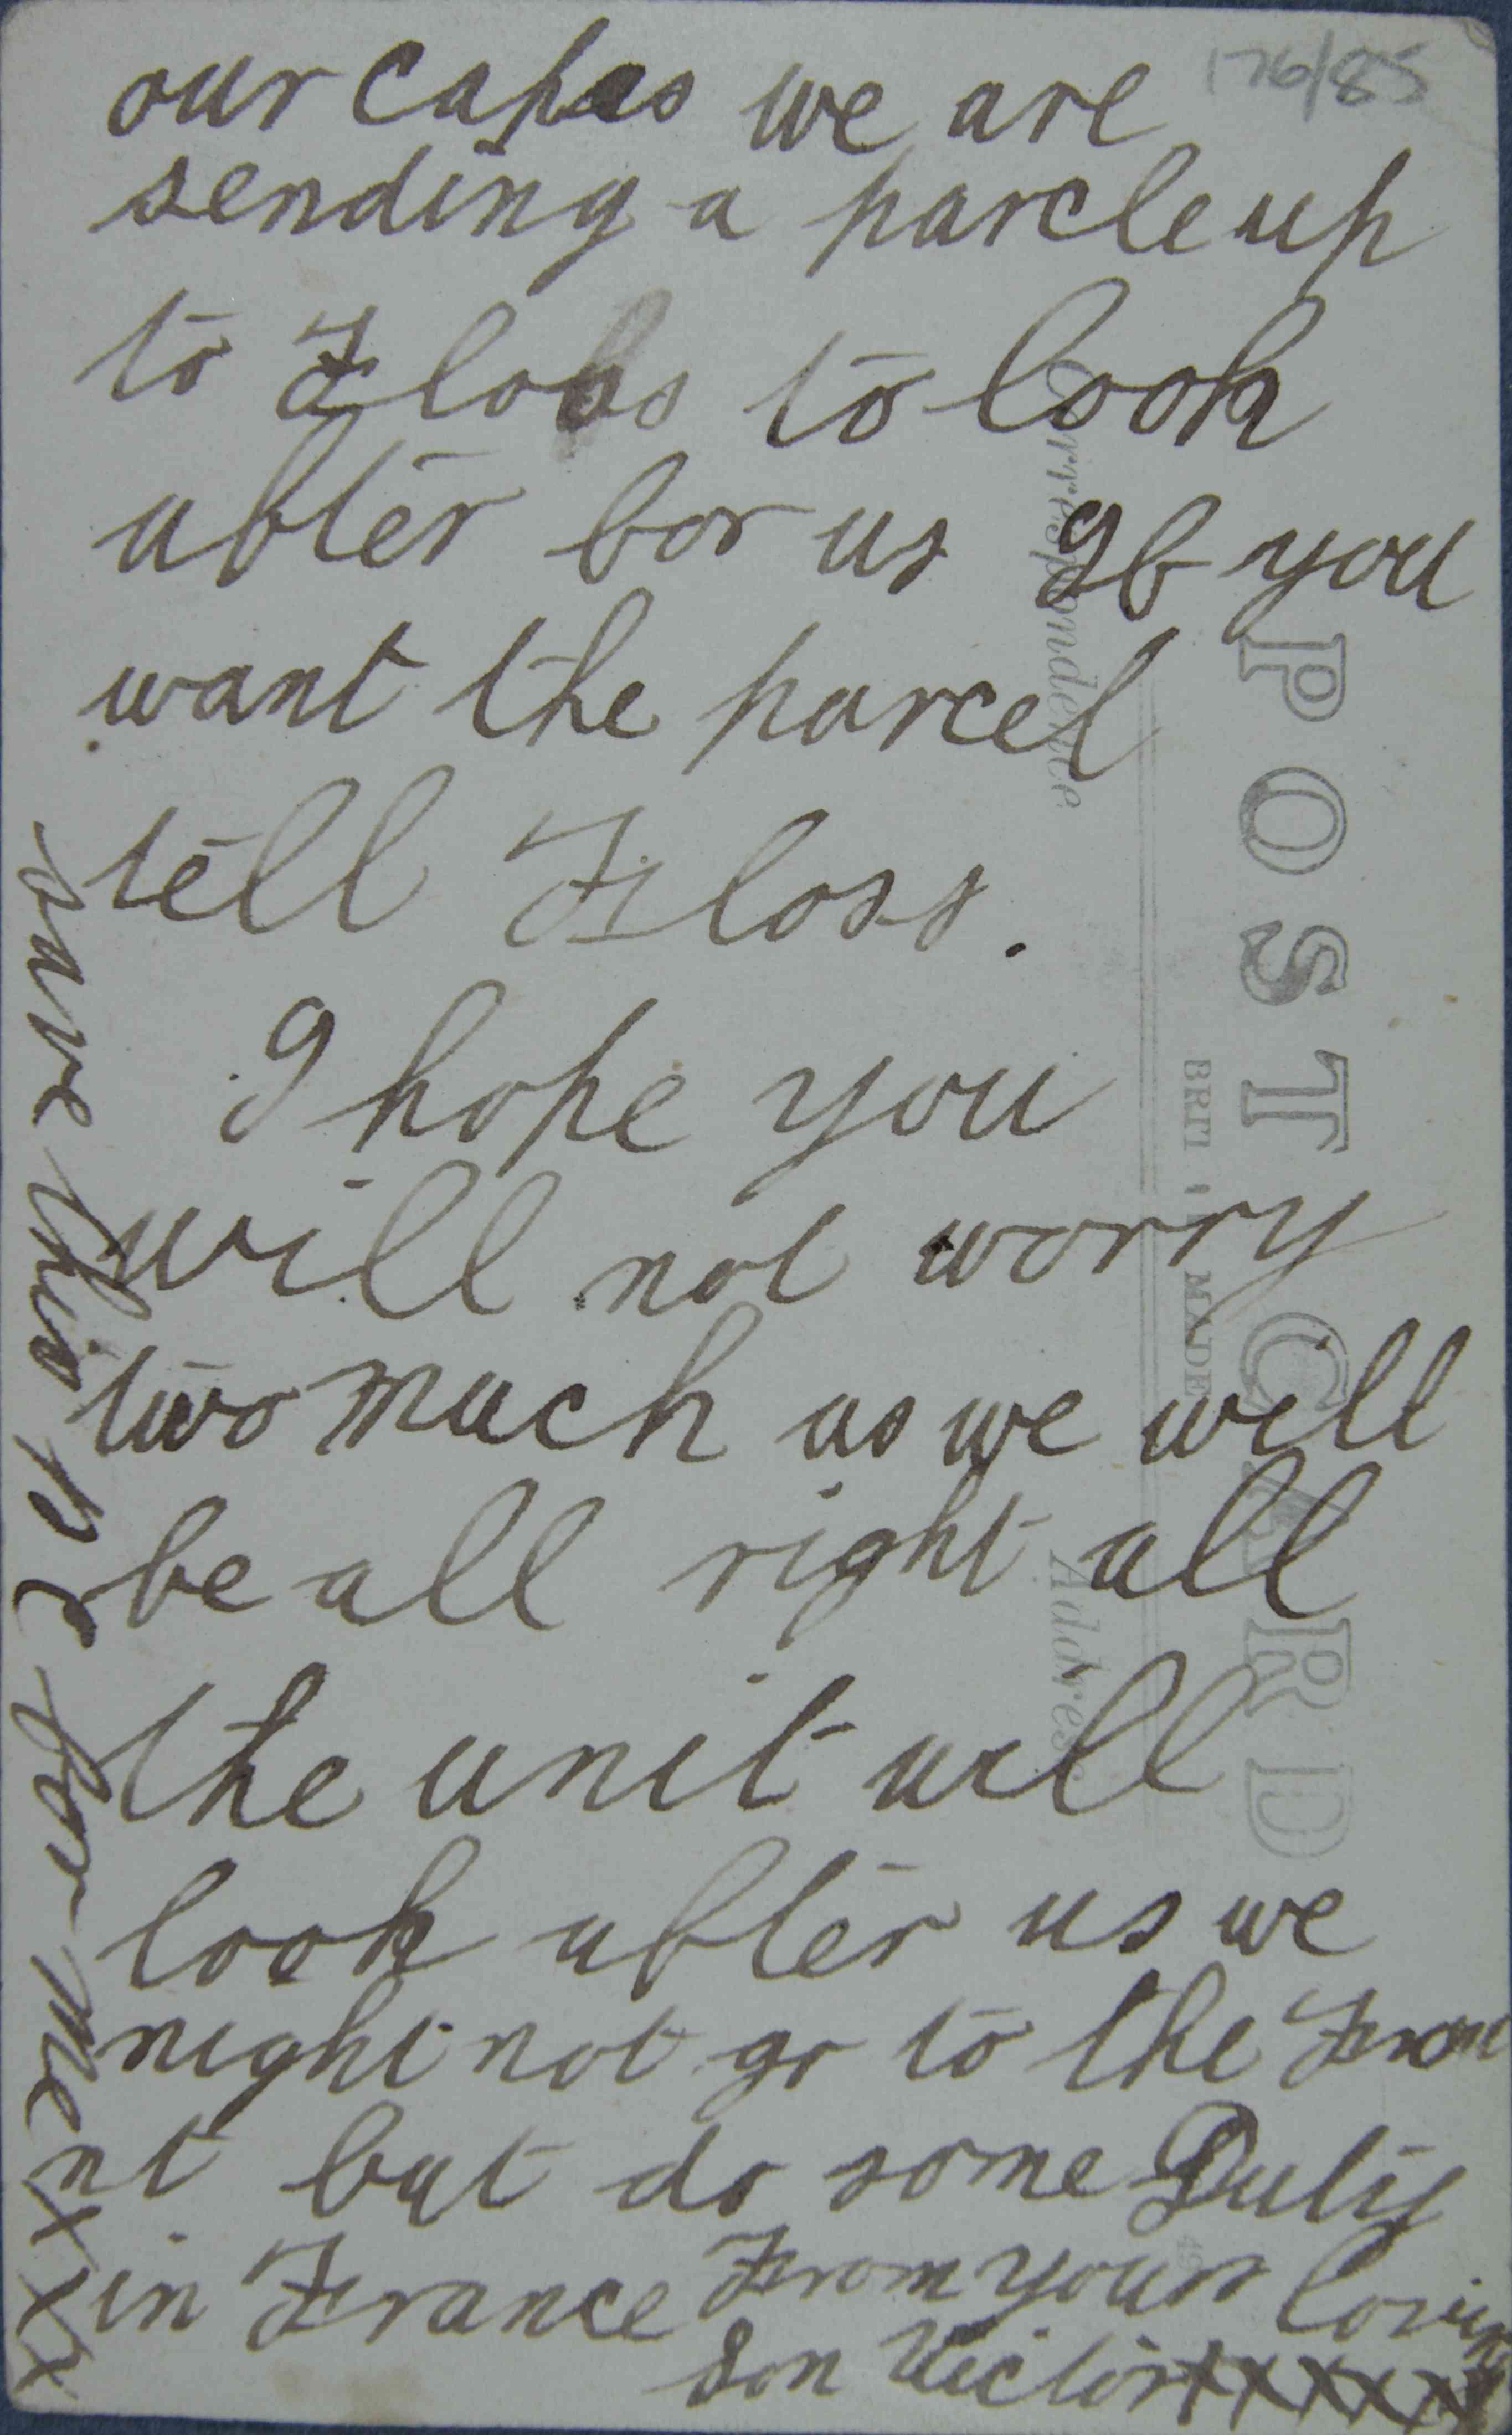 176/85
our capes we are
sending a parcle up
to Floss to look
after for us If you
want the parcel
tell Floss.
I hope you
will not worry
two much as we will
be all right all
the unit will
look after us we
might not go to the Fron
nt but do some Duty
in France From yours loving
Son Victor xxxxxx
save this one for me xxxx
POST CARD
Correspondence
Address
MADE